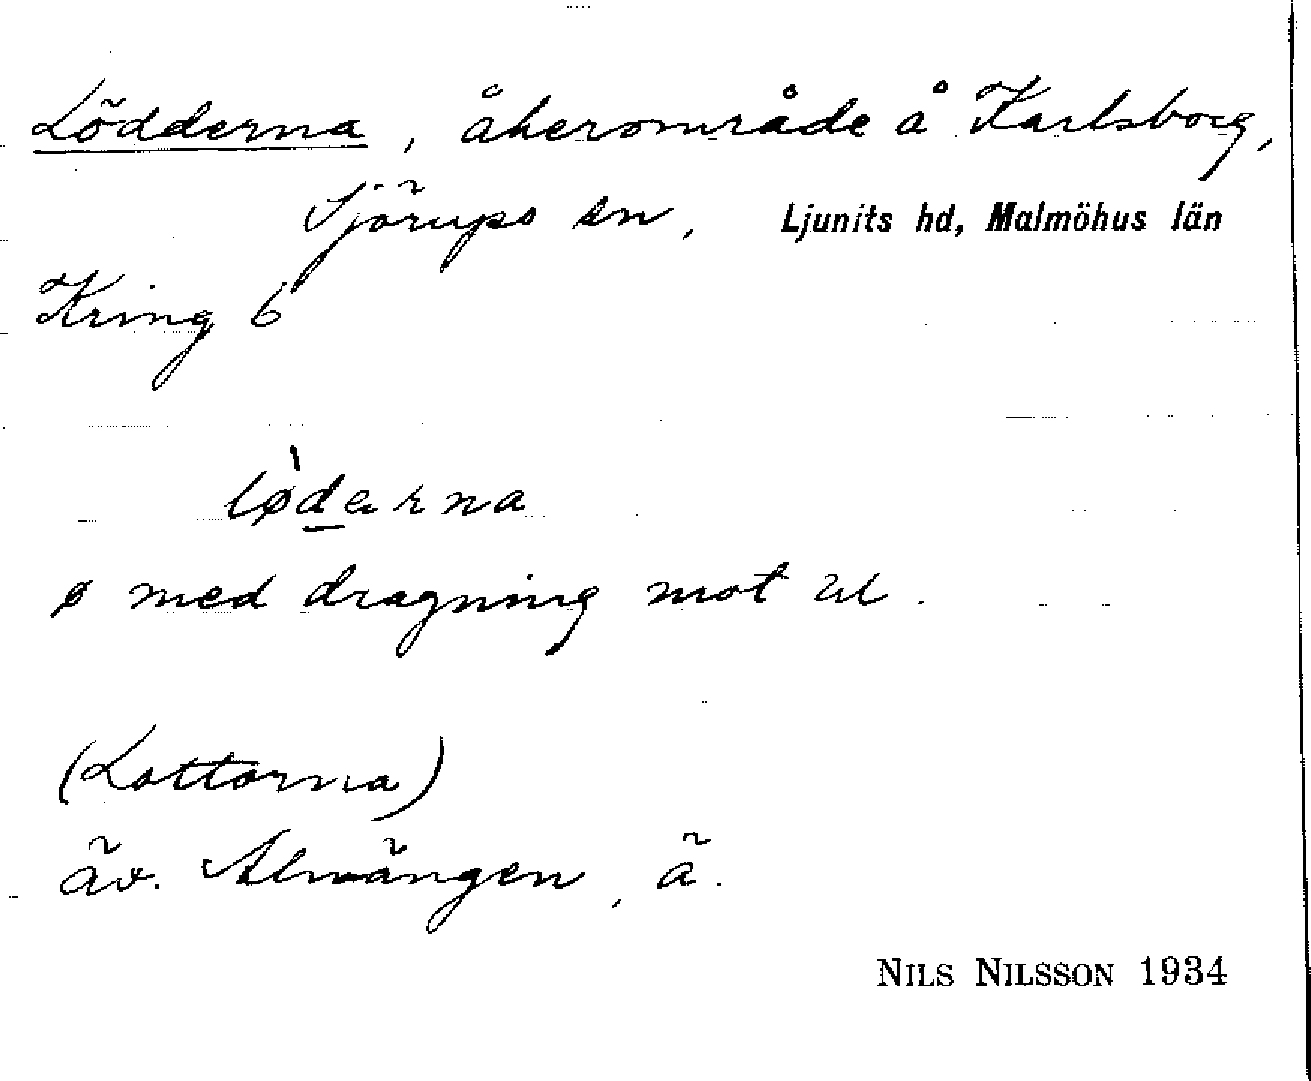 Lödderna, åkerområde å Karlsborg,
Sjörups sn, Ljunits hd, Malmöhus län
Kring 6
lø̀derna
ø med dragning mot
(Lottorna)
äv. Almängen, ä.
NILS NILSSON 1934